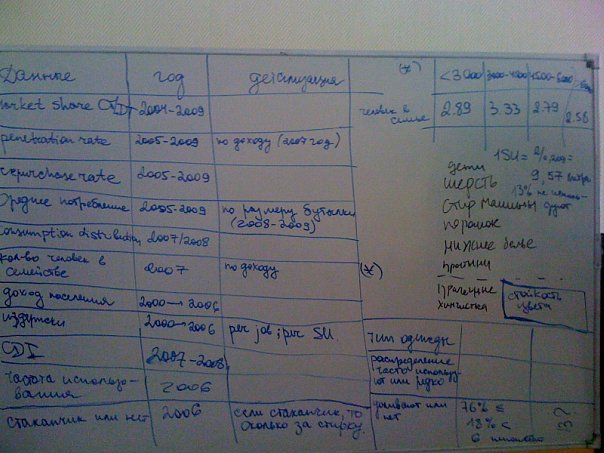 Данные год детализация
market share CDI 2004-2009
penetration rate 2005-2009 по доходу (2007 год)
repurchase rate 2005-2009
среднее потребление 2005-2009 по размеру бутылки
(2008-2009)
consumption distribution 2007/2008
кол-во человек в
семействе 2007 по доходу
доход населения 2000→2006
издержки 2000→2006 per job; per SU.
CDI 2007-2008
частота использо-
вания 2006
стаканчик или нет 2006 если стаканчик, то
сколько за стирку.
(*) <3000 3000-4000
человек в
семье 2.89 3.33 2.79 2.56
1SU =
дети 9,57 литра
шерсть 13% не
стир машины
порошок
нижнее белье
(*)
химчистка
стойкость
цвета
тип одежды
распределение
часто использу-
ют или редко
или
нет 76% ≤
18% <
6